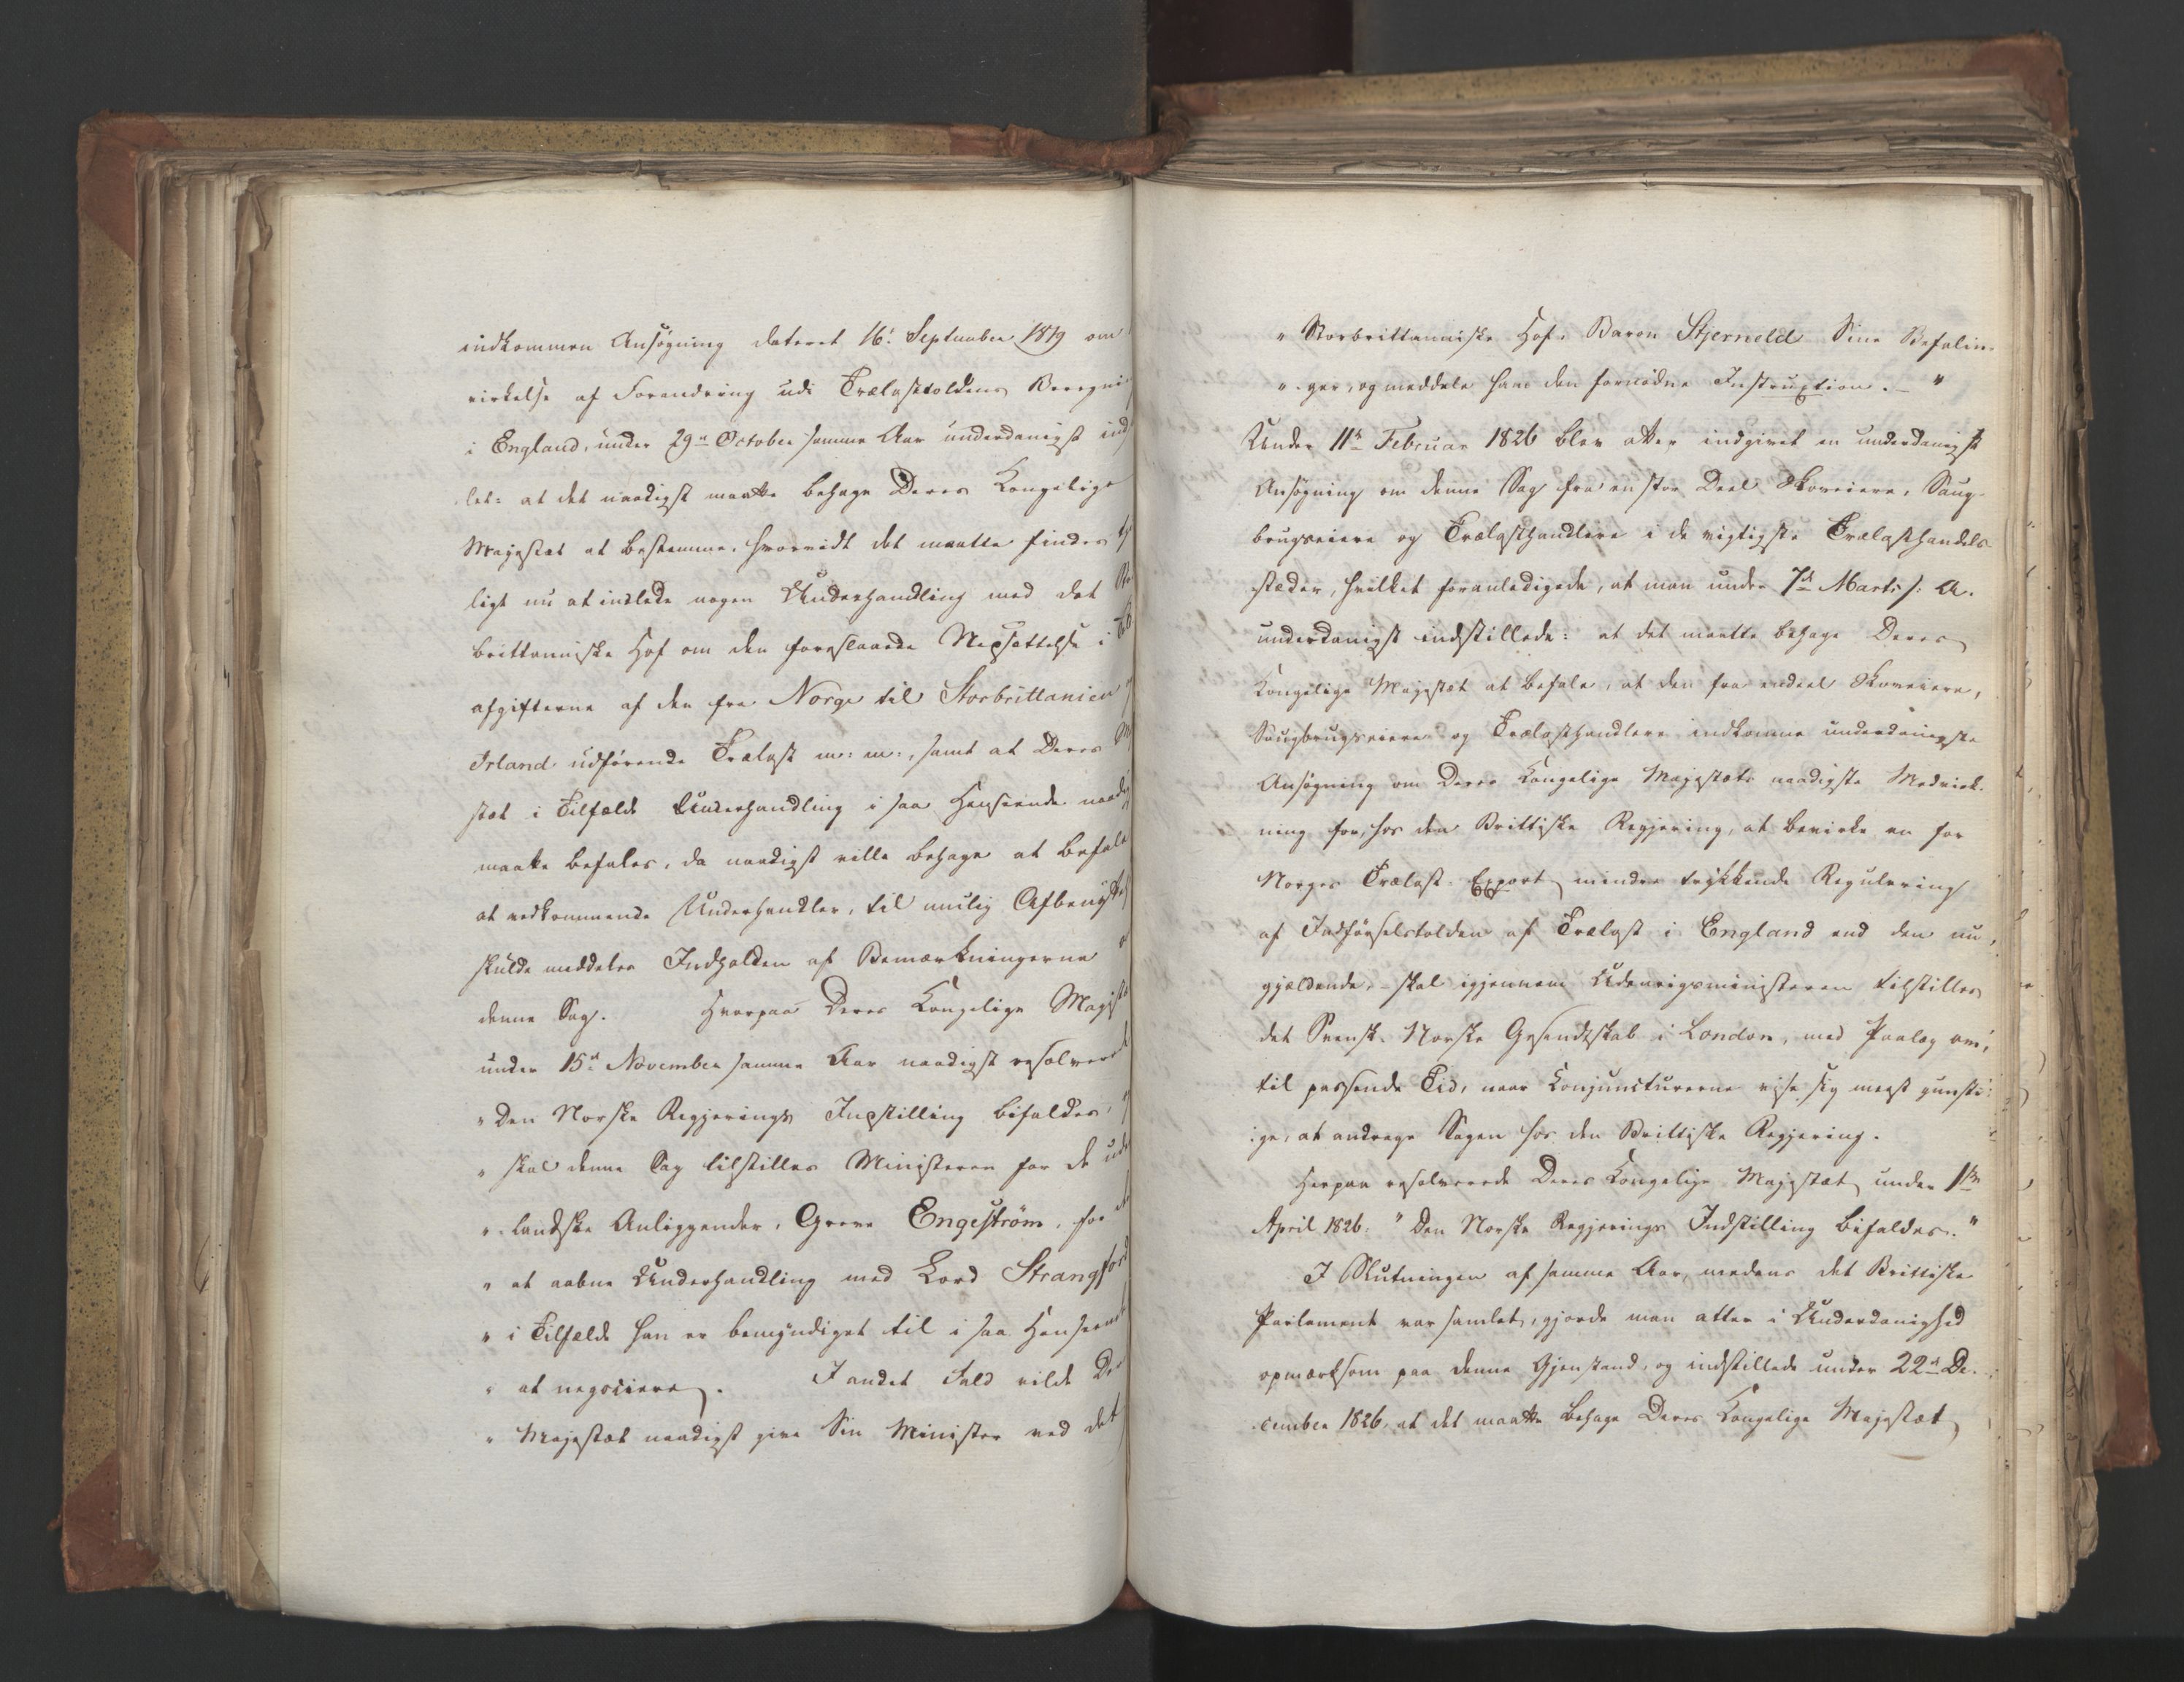 indkommen Ansøgning dateret 16: September 1819 om
virkelse af Forandring udi Trælasttoldens Beregni
i England, under 29de October samme Aar underdanigst ind
let: at det naadigst maatte behage Deres Kongelige
Majestæt at bestemme, hvorvidt det maatte findes
ligt nu at indlede nogen Underhandling med det
brittanniske Hof om den foreslaaede Nedsættelse i
afgifterne af den fra Norge til Storbrittanien
Irland udførende Trælast m: m:, samt at Deres
stæt i Tilfælde Underhandling i saa Henseende naadi
maatte befales, da naadigst ville behage at befale
at vedkommende Underhandler, til muelig Afbenyttel
skulde meddeles Indholden af Bemærkningerne
denne Sag. Hvorpaa Deres Kongelige Majestæ
under 15de November samme Aar naadigst resolverede
" Den Norske Regjerings Indstilling bifaldes,
" skal denne Sag tilstilles Ministeren for de ude
" landske Anliggender, Greve Engeström, for at
" at aabne Underhandling med Lord Strangford
" i Tilfælde han er bemyndiget til i saa Henseende
" at negociere. I andet Fald vilde De
" Majestæt naadigst give Sin Minister ved det
" Storbrittanniske Hof, Baron Stjerneld Sine Befalin-
" ger, og meddele ham den fornødne Instruxtion. - "
Under 11te Februar 1826 blev atter indgivet en underdanigst
Ansøgning om denne Sag fra en stor Deel Skoveiere, Saug-
brugseiere og Trælasthandlere i de vigtigste Trælasthandels-
stæder, hvilket foranledigede, at man under 7de Marts s: A.
underdanigst indstillede: at det maatte behage Deres
Kongelige Majestæt at befale, at den fra endeel Skoveiere,
Saugbrugseiere og Trælasthandlere indkomne underdanigste
Ansøgning om Deres Kongelige Majestæts naadigste Medvirk-
ning for, hos den Brittiske Regjering, at bevirke en for
Norges Trælast-Export mindre trykkende Regulering
af Indførselstolden af Trælast i England end den nu
gjældende, - skal igjennem Udenrigsministeren tilstilles
det Svensk-Norske Gesendtskab i London, med Paalæg om,
til passende Tid, naar Konjuncturerne vise sig meest gunsti-
ge, at andrage Sagen hos den Brittiske Regjering.
Herpaa resolverede Deres Kongelige Majestæt under 1ste
April 1826: " Den Norske Regjerings Indstilling bifaldes. "
I Slutningen af samme Aar, medens det Brittiske
Parlament var samlet, gjorde man atter i Underdanighed
opmærksom paa denne Gjenstand, og indstillede under 22de De-
cember 1826, at det maatte behage Deres Kongelige Majestæt